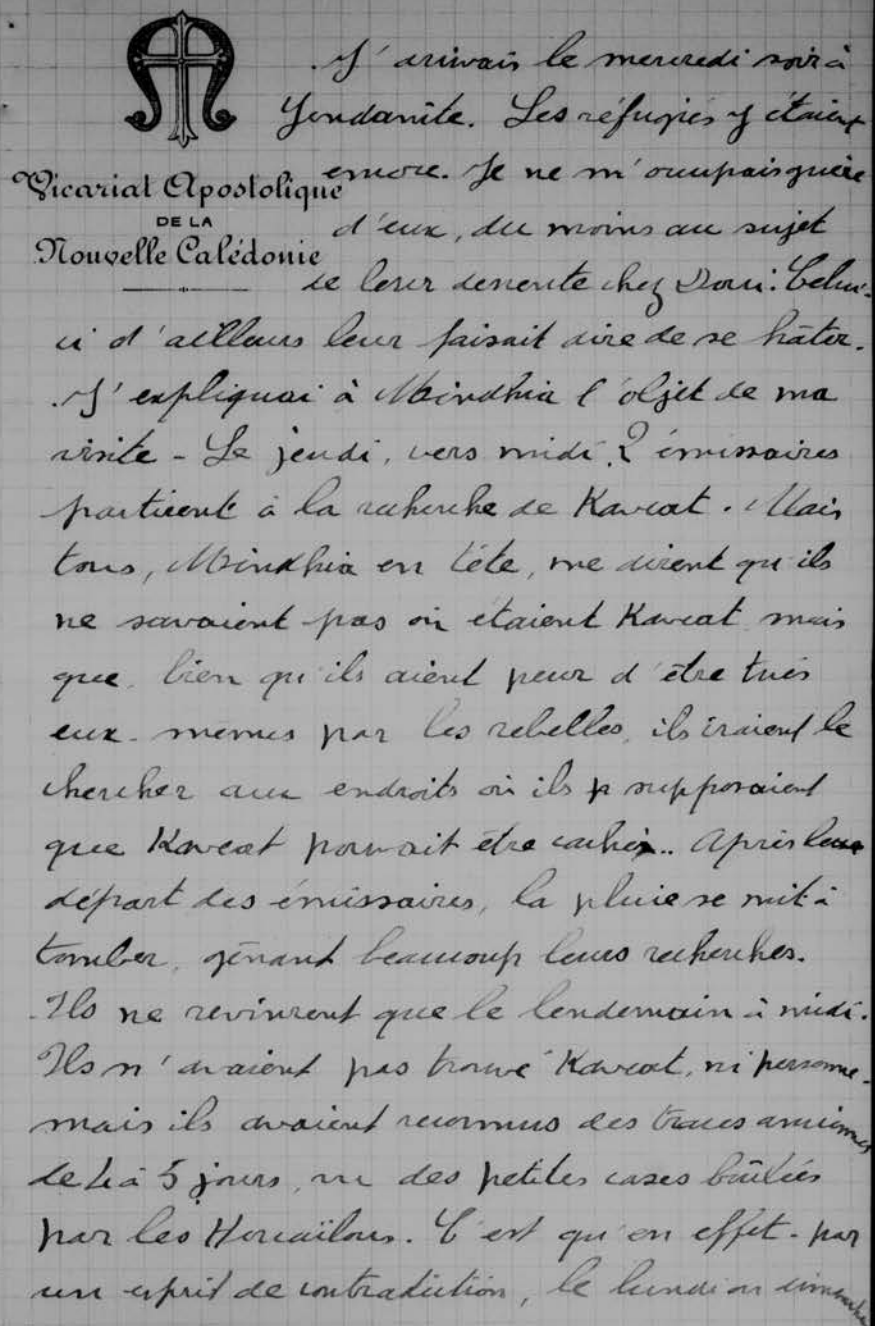 Vicariat Apostolique
DE LA
Nouvelle Calédonie
J'arrivais le mercredi soir à
Les réfugiés y étaient
encore. Je ne m'occupais guère
d'eux, du moins au sujet
de leur descente chez Doui. Celui-
ci d'ailleurs leur faisait dire de se hâter.
J'expliquai à Mindhia l'objet de ma
visite - Le jeudi, vers midi, 2 émissaires
partirent à la recherche de Kavéat. Mais
tous, Mindhia en tête, me dirent qu'ils
ne savaient pas où étaient Kavéat mais
que, bien qu'ils aient peur d'être tués
eux-mêmes par les rebelles, ils iraient le
chercher aux endroits où ils supposaient
que Kavéat pouvait être caché.. Après
départ des émissaires, la pluie se mit à
tomber, gênant beaucoup leurs recherches.
Ils ne revinrent que le lendemain à midi.
Ils n'avaient pas trouvé Kavéat, ni personne -
mais ils avaient reconnus des traces anciennes
de 4 à 5 jours, vu des petites cases brûlées
par les Houaïlous. C'est qu'en effet - par
un esprit de contradiction, le lundi ou dimanche